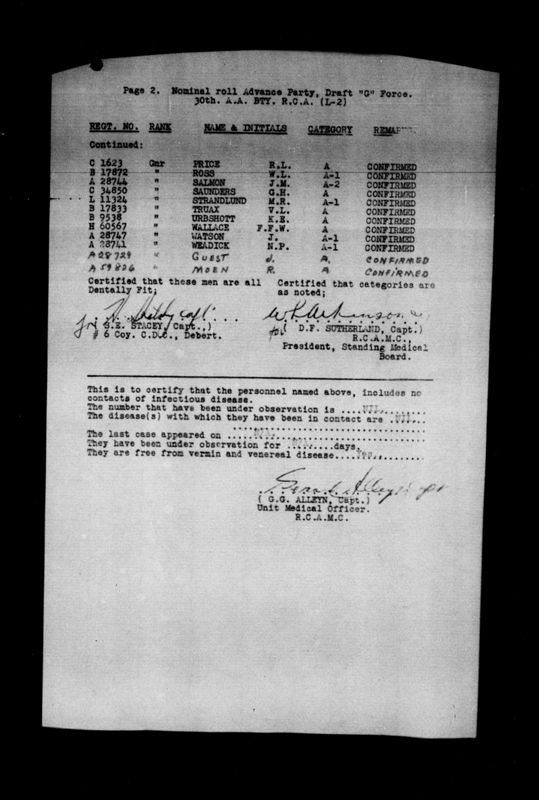 Page 2. Nominal roll Advance Party, Draft "G" Force.
30th. A.A. BTY. R.C.A. (L-2)
REGT. NO. RANK NAME & INITIALS CATEGORY REMARKS.
Continued:
C 1623 Gnr PRICE R.L. A CONFIRMED
B 17872 " ROSS W.L. A-1 CONFIRMED
A 28744 " SALMON J.M. A-2 CONFIRMED
C 34850 " SAUNDERS G.H. A CONFIRMED
L 11324 " STRANDLUND M.R. A-1 CONFIRMED
B 17833 " TRUAX V.L. A CONFIRMED
B 9538 " URBSHOTT K.E. A CONFIRMED
H 60567 " WALLACE F.F.W. A CONFIRMED
A 28747 " WATSON J. A-1 CONFIRMED
A 28741 " WEADICK N.P. A-1 CONFIRMED
A 28729 " GUEST J. A. CONFIRMED
A 59826 " MOEN R. A CONFIRMED
Certified that these men are all Dentally Fit;
Certified that categories are as noted;
Capt.
for S.E. STACEY, Capt.,)
# 6 Coy. C.D.C., Debert.
for ( D.F. SUTHERLAND, Capt.)
R.C.A.M.C.,
President, Standing Medical
Board.
This is to certify that the personnel named above, includes no
contacts of infectious disease.
The number that have been under observation is ....NIL.......
The disease(s) with which they have been in contact are .NIL..
The last case appeared on .....
They have been under observation for ... days.
They are free from vermin and venereal disease....Yes.,......
( G.G. ALLEYN, Capt.)
Unit Medical Officer.
R.C.A.M.C.